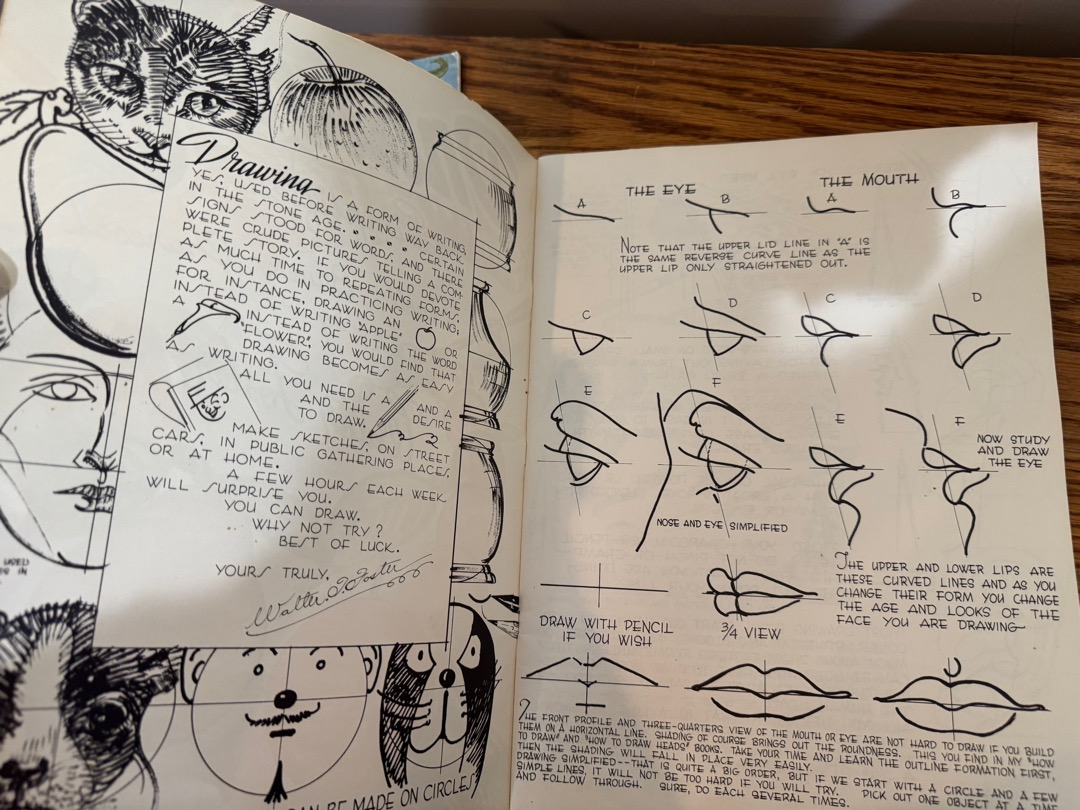 Drawing IS A FORM OF WRITING.
YES, USED BEFORE WRITING WAY BACK
IN THE STONE AGE. CERTAIN
SIGNS STOOD FOR WORDS, AND THERE
WERE CRUDE PICTURES TELLING A COM-
PLETE STORY. IF YOU WOULD DEVOTE
AS MUCH TIME TO REPEATING FORMS,
AS YOU DO IN PRACTICING WRITING;
FOR INSTANCE, DRAWING AN
INSTEAD OF WRITING "APPLE" OR
A INSTEAD OF WRITING THE WORD
"FLOWER", YOU WOULD FIND THAT
DRAWING BECOMES AS EASY
AS WRITING.
ALL YOU NEED IS A
AND THE AND A
TO DRAW. DESIRE
MAKE SKETCHES, ON STREET
CARS, IN PUBLIC GATHERING PLACES,
OR AT HOME.
A FEW HOURS EACH WEEK
WILL SURPRISE YOU.
YOU CAN DRAW.
WHY NOT TRY?
BEST OF LUCK.
YOURS TRULY,
Walter T. Foster
USED
IN
CAN BE MADE ON CIRCLES
THE EYE THE MOUTH
A B A B
NOTE THAT THE UPPER LID LINE IN "A" IS
THE SAME REVERSE CURVE LINE AS THE
UPPER LIP ONLY STRAIGHTENED OUT.
C D C D
E F E F
NOW STUDY
AND DRAW
THE EYE
NOSE AND EYE SIMPLIFIED
THE UPPER AND LOWER LIPS ARE
THESE CURVED LINES AND AS YOU
CHANGE THEIR FORM YOU CHANGE
THE AGE AND LOOKS OF THE
FACE YOU ARE DRAWING
DRAW WITH PENCIL
IF YOU WISH
3/4 VIEW
THE FRONT PROFILE AND THREE-QUARTERS VIEW OF THE MOUTH OR EYE ARE NOT HARD TO DRAW IF YOU BUILD
THEM ON A HORIZONTAL LINE. SHADING OF COURSE BRINGS OUT THE ROUNDNESS. THIS YOU FIND IN MY "HOW
TO DRAW" AND "HOW TO DRAW HEADS" BOOKS. TAKE YOUR TIME AND LEARN THE OUTLINE FORMATION FIRST,
THEN THE SHADING WILL FALL IN PLACE VERY EASILY.
DRAWING SIMPLIFIED--THAT IS QUITE A BIG ORDER, BUT IF WE START WITH A CIRCLE AND A FEW
SIMPLE LINES, IT WILL NOT BE TOO HARD IF YOU WILL TRY. PICK OUT ONE OBJECT AT A TIME
AND FOLLOW THROUGH. SURE, DO EACH SEVERAL TIMES.